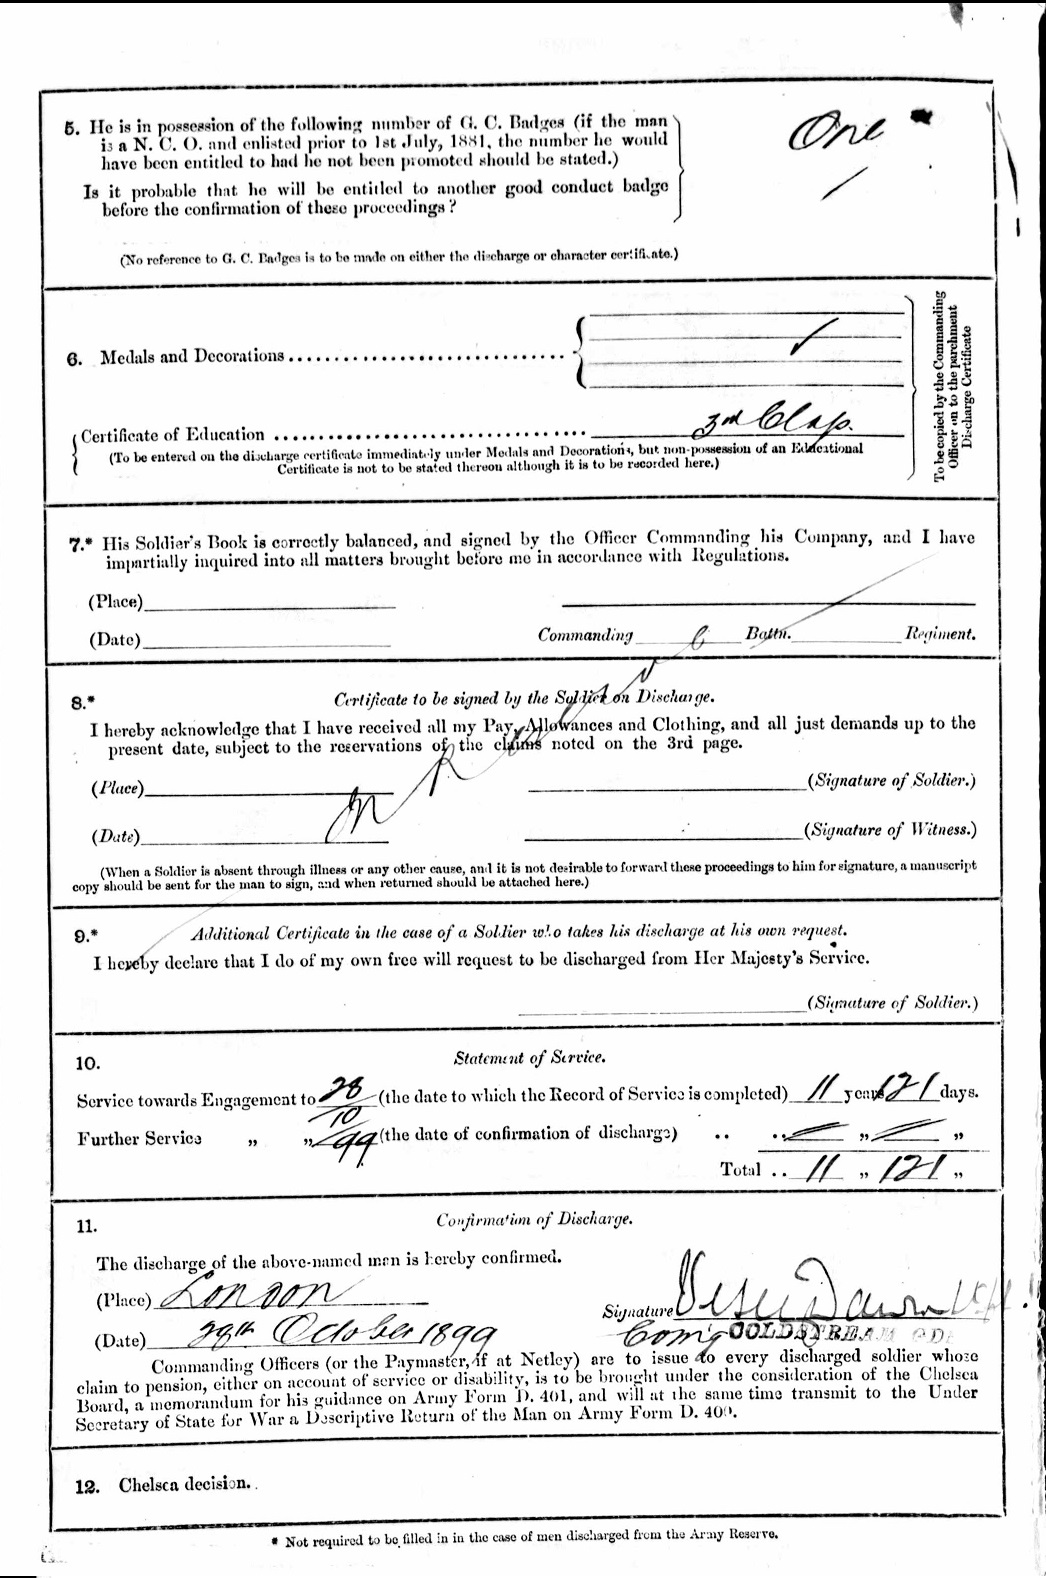 5. He is in possession of the following number of G. C. Badges (if the man
is a N. C. O. and enlisted prior to 1st July, 1881, the number he would
have been entitled to had he not been promoted should be stated.)
One
Is it probable that he will be entitled to another good conduct badge
before the confirmation of these proceedings?
(No reference to G. C. Badges is to be made on either the discharge or character certificate.)
6. Medals and Decorations
Certificate of Education 3rd Class.
(To be entered on the discharge certificate immediately under Medals and Decorations, but non-possession of an Educational
Certificate is not to be stated thereon although it is to be recorded here.)
To be copied by the Commanding
Officer on to the parchment
Discharge Certificate
7.* His Soldier's Book is correctly balanced, and signed by the Officer Commanding his Company, and I have
impartially inquired into all matters brought before me in accordance with Regulations.
(Place)
(Date) Commanding Battn. Regiment.
8.* Certificate to be signed by the Soldier on Discharge.
I hereby acknowledge that I have received all my Pay, Allowances and Clothing, and all just demands up to the
present date, subject to the reservations of the claims noted on the 3rd page.
(Place) (Signature of Soldier.)
(Date) (Signature of Witness.)
(When a Soldier is absent through illness or any other cause, and it is not desirable to forward these proceedings to him for signature, a manuscript
copy should be sent for the man to sign, and when returned should be attached here.)
9.* Additional Certificate in the case of a Soldier who takes his discharge at his own request.
I hereby declare that I do of my own free will request to be discharged from Her Majesty's Service.
(Signature of Soldier.)
10. Statement of Service.
Service towards Engagement to 28/10/99 (the date to which the Record of Service is completed) 11 years 121 days.
Further Service " " (the date of confirmation of discharge) .. .. " "
Total .. 11 " 121 "
11. Confirmation of Discharge.
The discharge of the above-named man is hereby confirmed.
(Place) London
Signature
(Date) 28th October 1899 Comg COLDSTREAM GDS
Commanding Officers (or the Paymaster, if at Netley) are to issue to every discharged soldier whose
claim to pension, either on account of service or disability, is to be brought under the consideration of the Chelsea
Board, a memorandum for his guidance on Army Form D. 401, and will at the same time transmit to the Under
Secretary of State for War a Descriptive Return of the Man on Army Form D. 400.
12. Chelsea decision.
* Not required to be filled in in the case of men discharged from the Army Reserve.